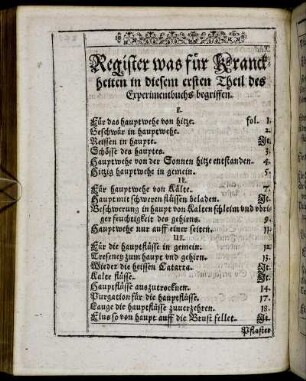 Register was für Kranck
heiten in diesem ersten Theil des
Experimentbuchs begriffen.
I.
Für das hauptwehe von hitze. fol. 1.
Beschwär in hauptwehe.
Reissen in haupte. It.
Schösse des hauptes. 3.
Hauptwehe von der Sonnen hitz entstanden. 4.
Hitzig hauptwehe in gemein. 5.
II.
Für hauptwehe von Kälte. 7.
Haupt mit schweren flüssen beladen. It.
Beschwerung in haupt von Kalten schleim und vbri-
ger feuchtigkeit des gehiens. 9.
Hauptwehe nur auff einer seiten. 11.
III.
Für die hauptflüsse in gemein. 12.
Treseney zum haupt vnd gehirn. 13.
Wieder die heissen Catarra. It.
Kalte flüsse. It.
Hauptflüsse auszutrocknen. 14.
Purgation für die hauptflüsse. 17.
Lauge die hauptflüsse zuuerzehren. 18.
Flus so von haupt auff die Brust fellet. It.
Pflaster